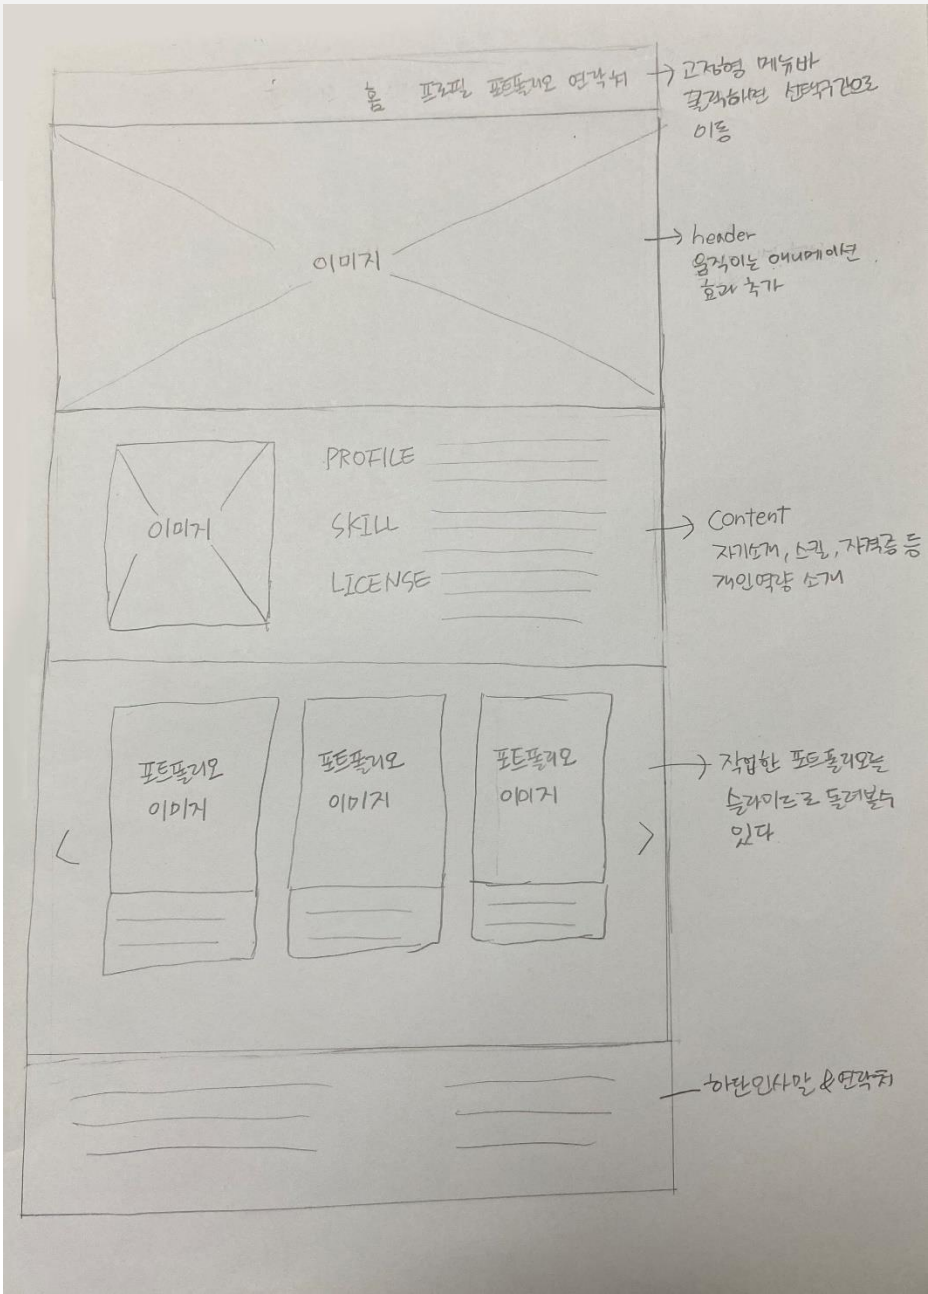 홈 프로필 포트폴리오 연락처
→ 고정형 메뉴바
클릭하면 선택구간으로
이동
이미지
→ header
움직이는 애니메이션
효과 추가
이미지
PROFILE
SKILL
LICENSE
→ Content
자기소개, 스킬, 자격증 등
개인역량 소개
포트폴리오
이미지
포트폴리오
이미지
포트폴리오
이미지
<
>
→ 작업한 포트폴리오를
슬라이드로 돌려볼수
있다
하단인사말 & 연락처